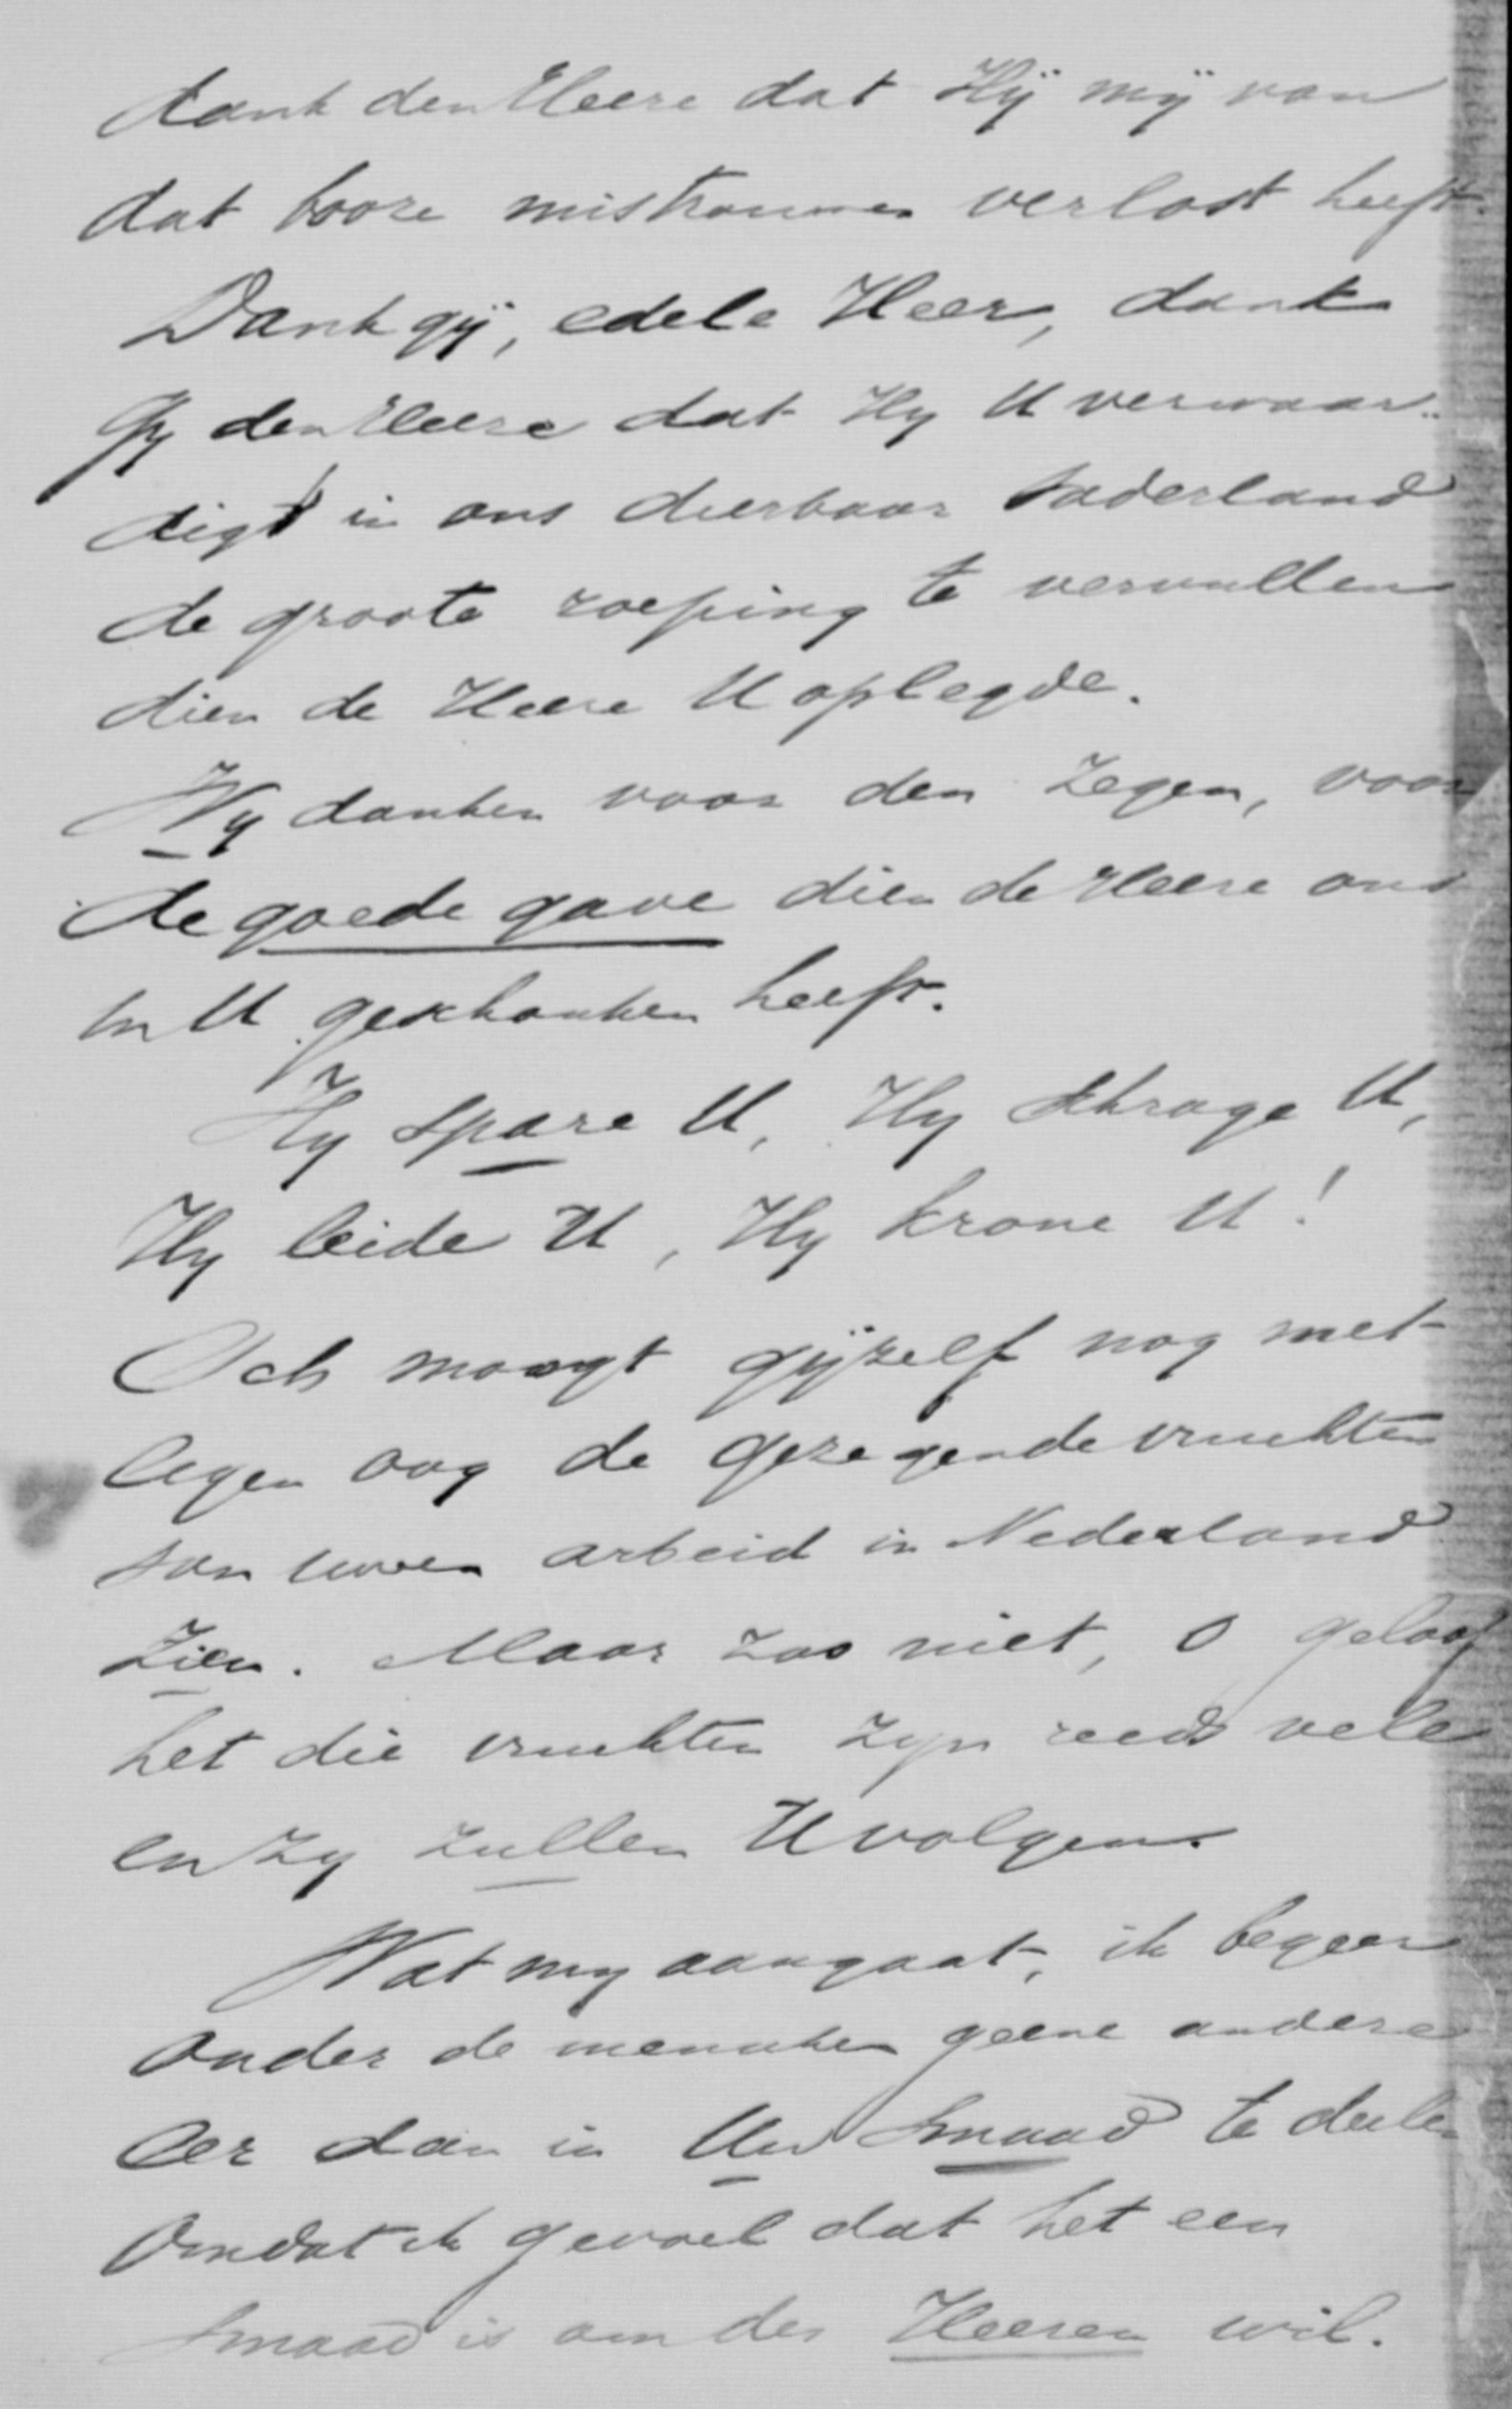 dank den Heere dat Hij mij van
dat booze mistrouwen verlost heeft.
Dank gij, edele Heer, dank
Gy den Heere dat Hy U verwaar-
digt in ons dierbaar Vaderland
de groote roeping te vervullen
dien de Heere U oplegde.
Wy danken voor den zegen, voor
de goede gave dien de Heere ons
in U geschonken heeft.
Hy spare U, Hy schrage U,
Hy leide U, Hy krone U!
Och moogt gijzelf nog met
eigen oog de gezegende vruchten
van uwen arbeid in Nederland
zien. Maar zoo niet, o geloof
het die vruchten zyn reeds vele
en zy zullen U volgen.
Wat my aangaat, ik begeer
onder de menschen geene andere
eer dan in Uw smaad te deelen
omdat ik gevoel dat het een
smaad is om des Heeren wil.